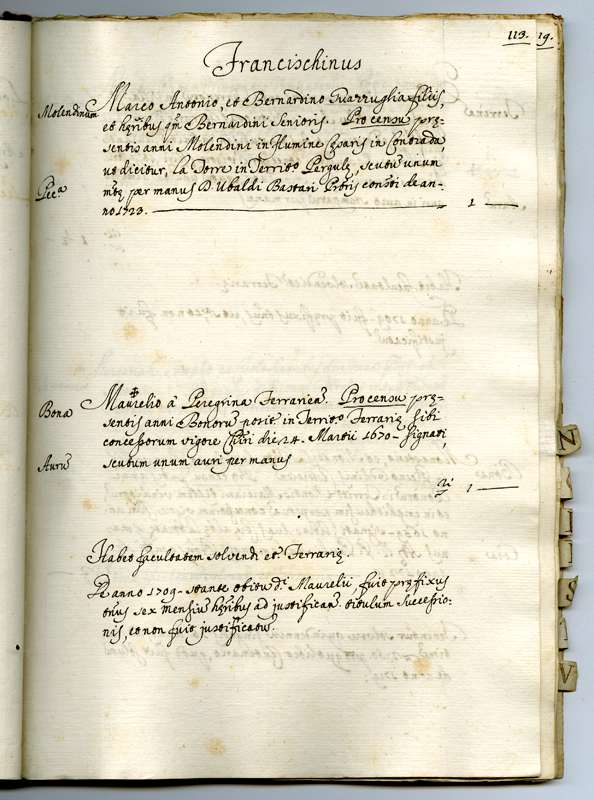 113. 19.
Francischinus
Molendinum
Marco Antonio, et Bernardino Guazzuglia filiis,
et hęribus qm̃ Bernardini Senioris. Pro censu prę-
sentis anni Molendini in flumine Cęsaris in Contrada,
ut dicitur, La Torre in Territ.o Pergulę, scutũ unum
Pec.a
mtę per manus D. Ubaldi Bastari de an-
no 1723. 1
Bona
Maurelio a Peregrina Ferrarien. Pro censu prę-
sentis anni Bonorũ posit. in Territ.o Ferrarię sibi
concessorum vigore die 24. Martii 1670 signati,
Aurũ
scutum unum auri per manus
1
Habet facultatem solvendi et. Ferrarię
De anno 1709 - stante obitu d.i Maurelii fuit pręfixus
tñus sex mensiũ hęribus ad justifican. titulum successio-
nis, et non fuit justificatũ.
N
S
V